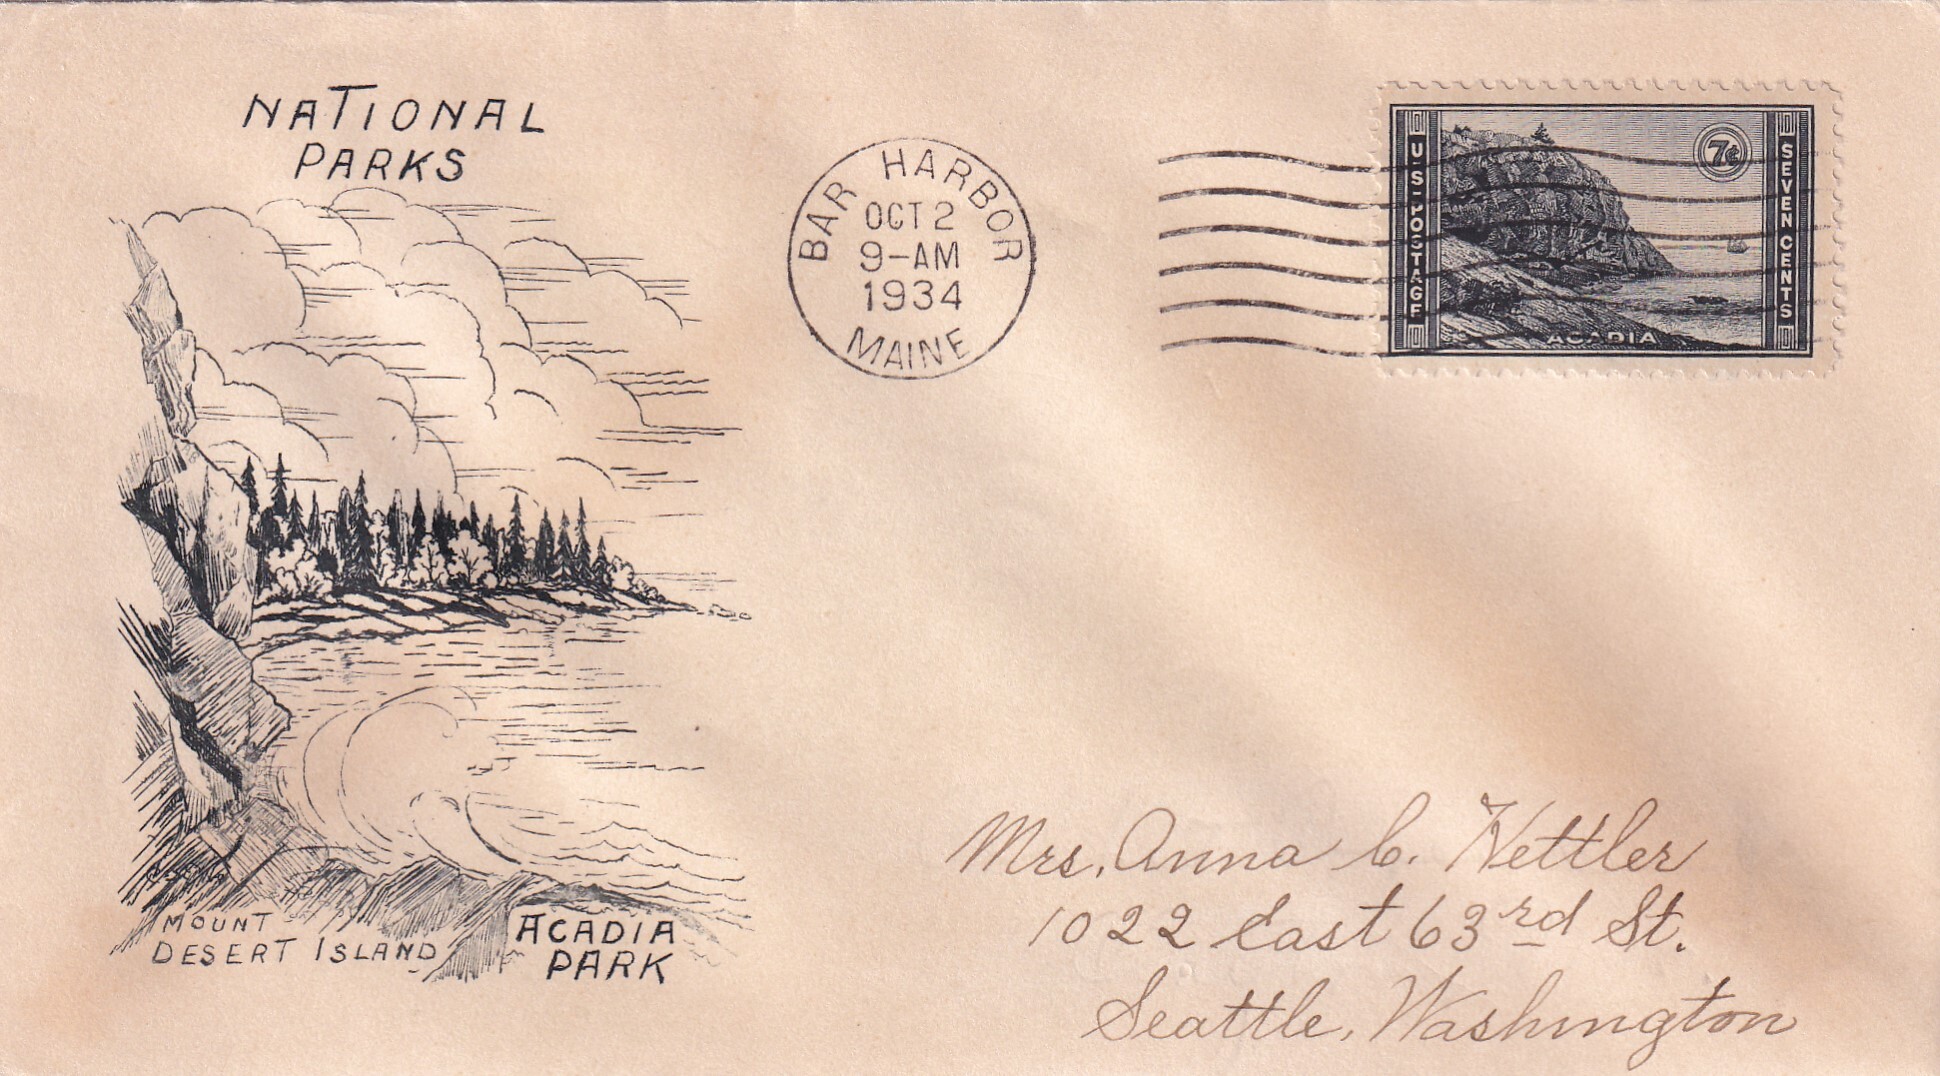 NATIONAL
PARKS
BAR HARBOR
OCT 2
9-AM
1934
MAINE
U·S·POSTAGE
7¢
SEVEN CENTS
ACADIA
MOUNT
DESERT ISLAND
ACADIA
PARK
Mrs. Anna C. Nettler
1022 East 63rd St.
Seattle, Washington